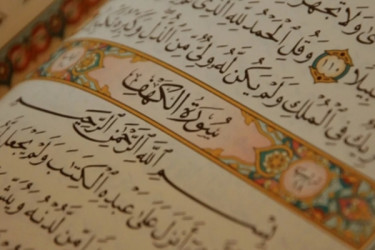 وَلَا تَجْهَرْ
وَقُلِ الْحَمْدُ لِلَّهِ الَّذِي
شَرِيكٌ فِي الْمُلْكِ وَلَمْ يَكُن لَّهُ وَلِيٌّ مِّنَ الذُّلِّ وَكَبِّرْهُ
١١١
سُورَةُ الْكَهْفِ
بِسْمِ اللَّهِ الرَّحْمَٰنِ الرَّحِيمِ
أَنزَلَ عَلَىٰ عَبْدِهِ الْكِتَٰبَ وَلَمْ يَجْعَل
مِّن لَّدُنْهُ